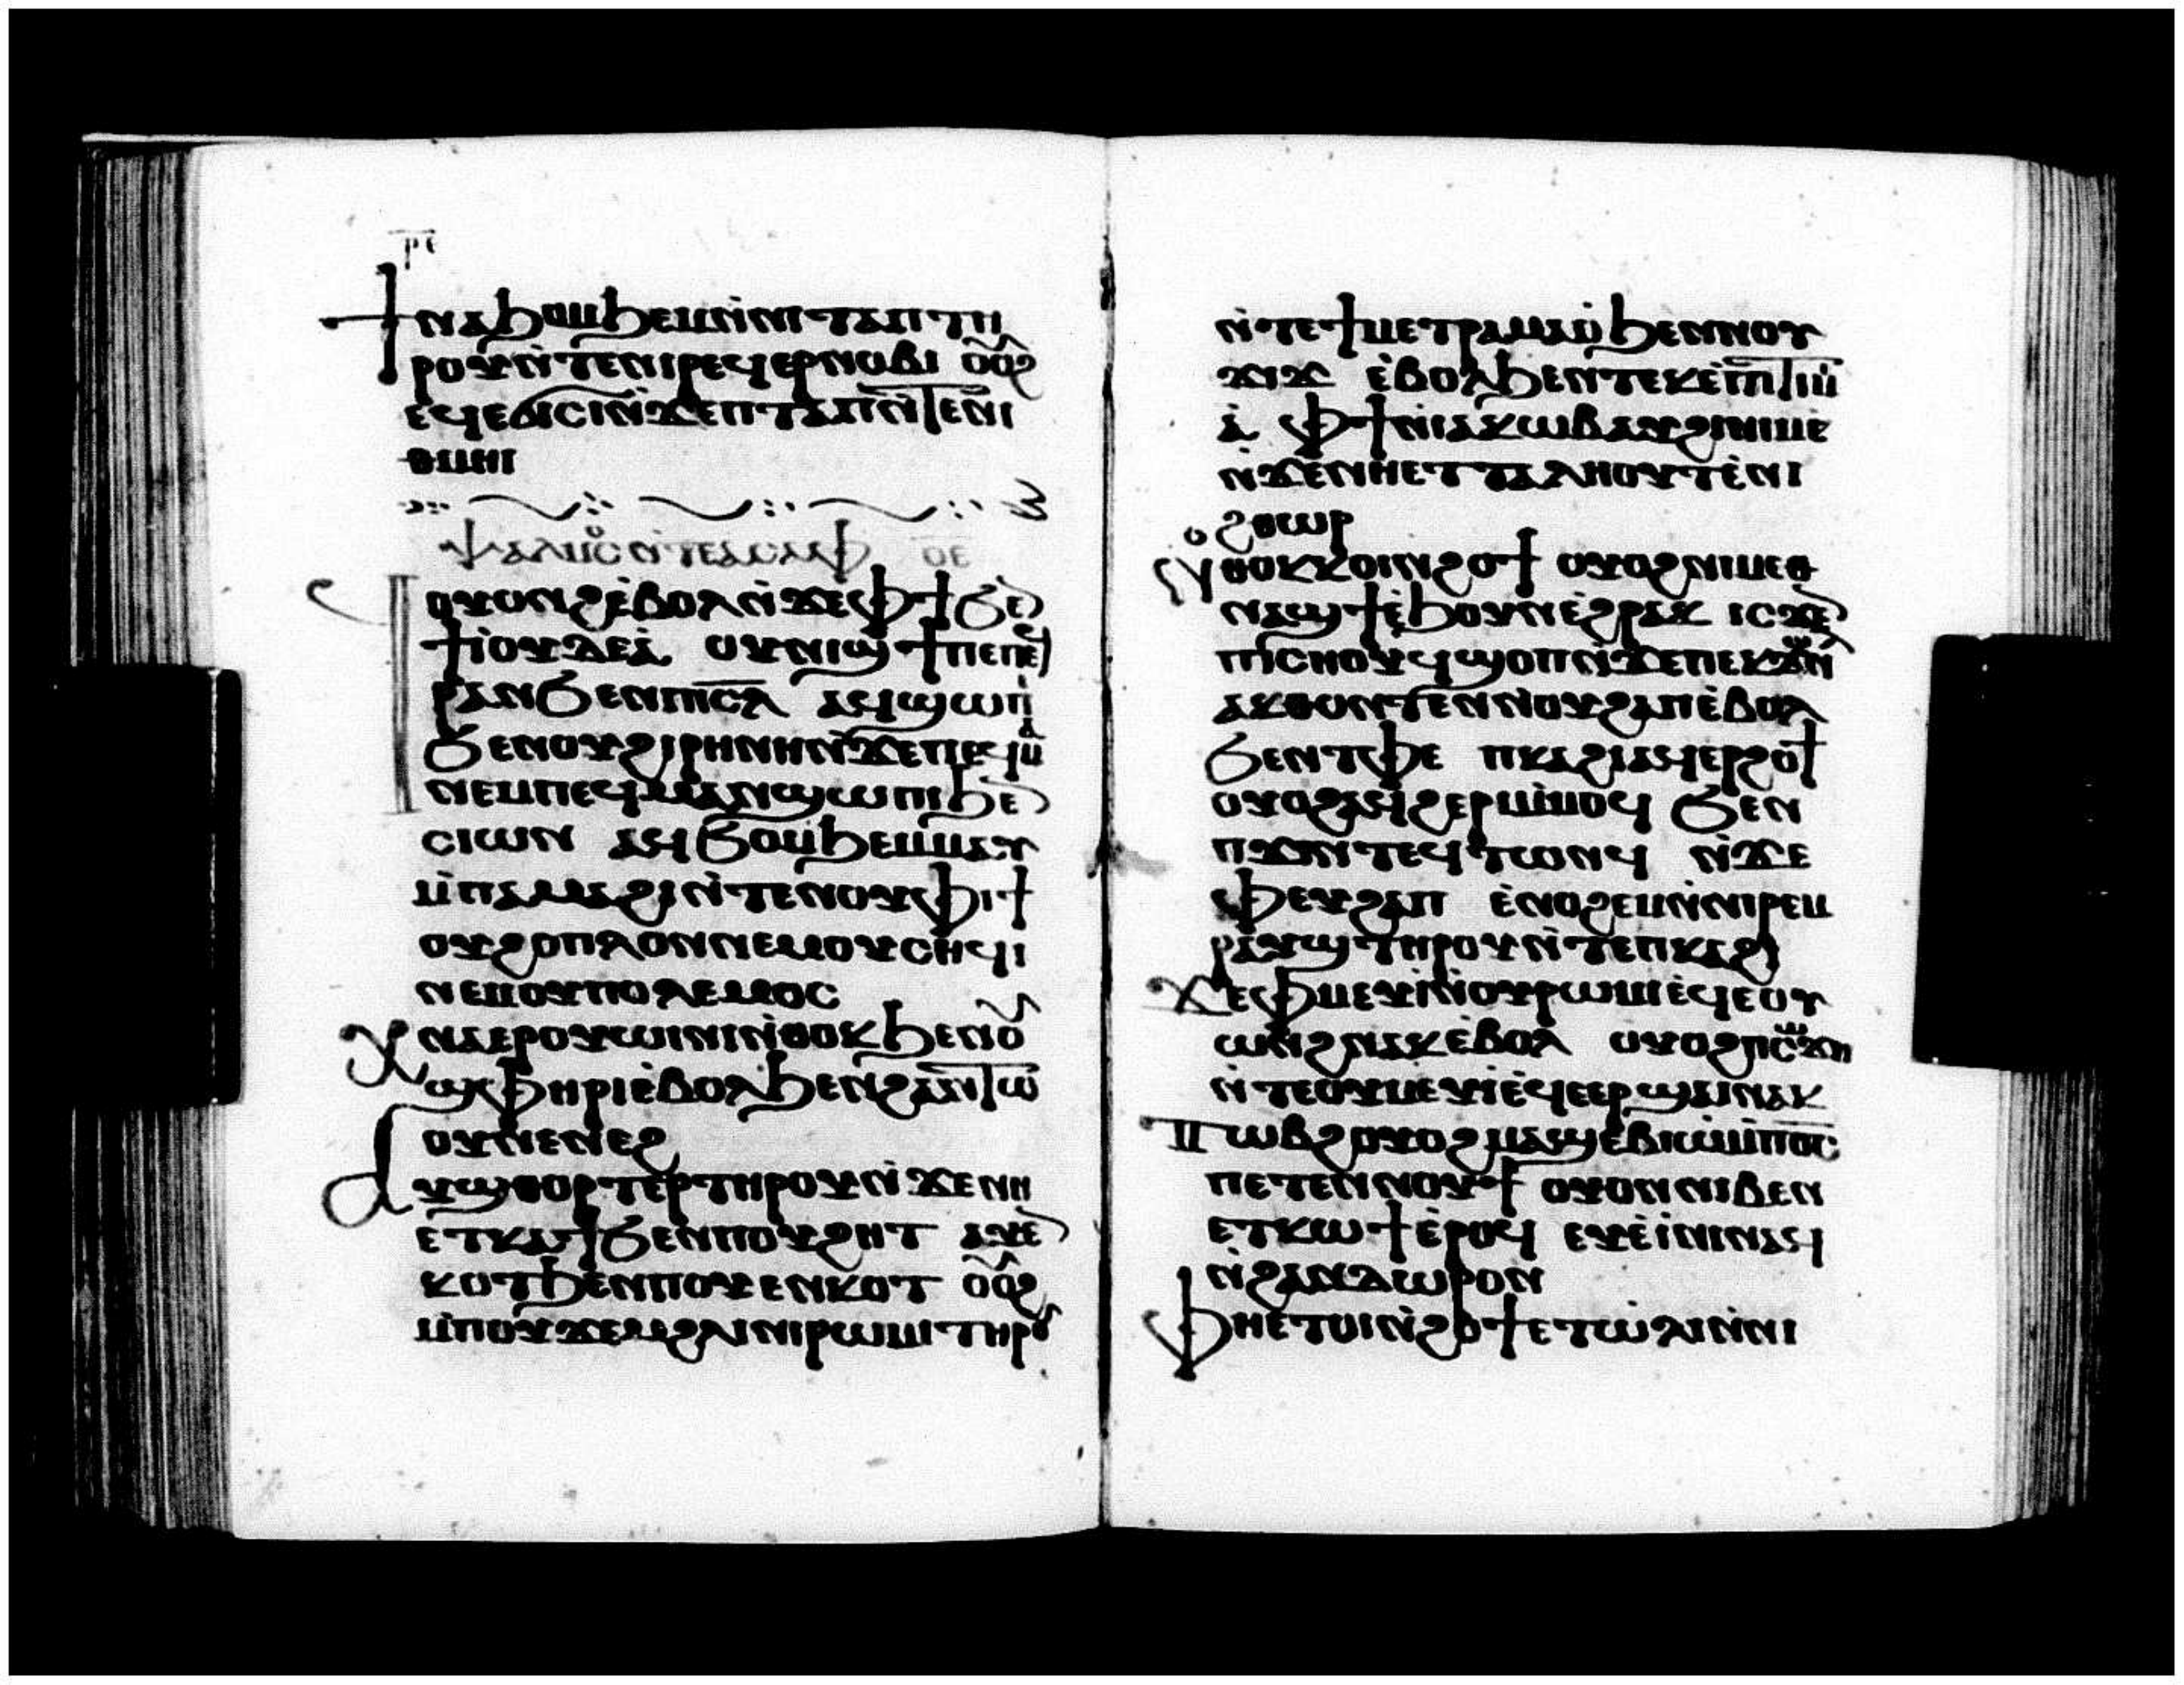 ⲣⲉ
ϯⲛⲁϧⲟⲙϧⲉⲙⲛ̀ⲛⲓⲧⲁⲡⲧⲏ
ⲣⲟⲩⲛ̀ⲧⲉⲛⲓⲣⲉϥⲉⲣⲛⲟⲃⲓ ⲟⲟϩ
ⲉϥⲉϭⲓⲥⲓⲛ̀ϫⲉⲡⲧⲁⲡⲛ̀ⲧⲉⲛⲓ
ⲑⲙⲏⲓ
ⲯⲁⲗⲙⲟⲥ ⲛ̀ⲧⲉⲁⲥⲁⲫ ⲟⲉ
ϥⲟⲩⲟⲛϩⲉ̀ⲃⲟⲗⲛ̀ϫⲉⲫϯϧⲉ
ϯⲓⲟⲩⲇⲉⲁ̀ ⲟⲩⲛⲓϣϯⲡⲉⲡⲉϥ
ⲣⲁⲛϧⲉⲛⲡⲓⲥⲗ ⲁϥϣⲱⲡⲓ
ϧⲉⲛⲟⲩϩⲓⲣⲏⲛⲏⲛ̀ϫⲉⲡⲉϥⲙⲁ
ⲛⲉⲙⲡⲉϥⲙⲁⲛϣⲱⲡⲓϧⲉ
ⲥⲓⲱⲛ ⲁϥϧⲟⲙϧⲉⲙⲙⲁⲩ
ⲙ̀ⲡⲁⲙⲁϩⲓⲛ̀ⲧⲉⲛⲟⲩⲫⲓϯ
ⲟⲩϩⲟⲡⲗⲟⲛⲛⲉⲙⲟⲩⲥⲏϥⲓ
ⲛⲉⲙⲟⲩⲡⲟⲗⲉⲙⲟⲥ
ⲭⲛⲁⲉⲣⲟⲩⲱⲓⲛⲓⲛ̀ⲑⲟⲕϧⲉⲛⲟⲩ
ϣⲫⲏⲣⲓⲉ̀ⲃⲟⲗϧⲉⲛϩⲁⲛⲧⲱ
ⲟⲩⲛⲉⲛⲉϩ
ⲁⲩϣⲑⲟⲣⲧⲉⲣⲧⲏⲣⲟⲩⲛ̀ϫⲉⲛⲏ
ⲉⲧⲕⲁϯϧⲉⲛⲡⲟⲩϩⲏⲧ ⲁⲩⲉ
ⲕⲟⲧϧⲉⲛⲡⲟⲩⲉⲛⲕⲟⲧ ⲟⲟϩ
ⲙ̀ⲡⲟⲩϫⲉⲙϩⲗⲓⲛⲓⲣⲱⲙⲓⲧⲏⲣⲟⲩ
ⲛ̀ⲧⲉϯⲙⲉⲧⲣⲁⲙⲁⲟ̀ϧⲉⲛⲛⲟⲩ
ϫⲓϫ ⲉ̀ⲃⲟⲗϧⲉⲛⲧⲉⲕⲉ̀ⲡⲓⲧⲓⲙⲓ
ⲁ̀ ⲫϯⲛ̀ⲓⲁⲕⲱⲃⲁⲩϩⲓⲛⲓⲙⲉ̀
ⲛ̀ϫⲉⲛⲏⲉⲧⲧⲁⲗⲏⲟⲩⲧⲉ̀ⲛⲓ
ϩⲑⲱⲣ
ⲛ̀ⲑⲟⲕⲕⲟⲓⲛϩⲟϯ ⲟⲩⲟϩⲛⲓⲙⲉⲑ
ⲛⲁϣϯⲉ̀ϧⲟⲩⲛⲉ̀ϩⲣⲁⲕ ⲓⲥϫⲉ
ⲡⲓⲥⲏⲟⲩϥϣⲟⲡⲛ̀ϫⲉⲡⲉⲕϫⲱⲛ
ⲁⲕⲑⲟⲛⲧⲉⲛⲛⲟⲩϩⲁⲡⲉ̀ⲃⲟⲗ
ϧⲉⲛⲧⲫⲉ ⲡⲕⲁϩⲓⲁϥⲉⲣϩⲟϯ
ⲟⲩⲟϩⲁϥϩⲉⲣⲙ̀ⲙⲟϥ ϧⲉⲛ
ⲡϫⲓⲛⲧⲉϥⲧⲱⲛϥ ⲛ̀ϫⲉ
ⲫⲉⲩϩⲁⲡ ⲉ̀ⲛⲟϩⲉⲙⲛ̀ⲛⲓⲣⲉⲙ
ⲣⲁⲩϣⲧⲏⲣⲟⲩⲛ̀ⲧⲉⲡⲕⲁϩⲓ
ϫⲉⲫⲙⲉⲩⲓⲛ̀ⲟⲩⲣⲱⲙⲓⲉϥⲉⲟⲩ
ⲱⲛϩⲛⲁⲕⲉⲃⲟⲗ ⲟⲩⲟϩⲡⲥⲱϫⲡ
ⲛ̀ⲧⲉⲟⲩⲙⲉⲩⲓⲉ̀ϥⲉⲉⲣϣⲁⲓⲛⲁⲕ
ⲡⲧⲱⲃϩⲟⲩⲟϩⲙⲁϣⲉⲃⲓⲱⲙ̀ⲡⲟⲥ
ⲡⲉⲧⲉⲛⲛⲟⲩϯ ⲟⲩⲟⲛⲛⲓⲃⲉⲛ
ⲉⲧⲕⲱϯⲉ̀ⲣⲟϥ ⲉⲩⲉ̀ⲓⲛⲓⲛⲁϥ
ⲛ̀ϩⲁⲛⲇⲱⲣⲟⲛ
ⲫⲏⲉⲧⲟⲓⲛ̀ϩⲟϯⲉⲧⲱ̀ⲗⲓⲛ̀ⲛⲓ